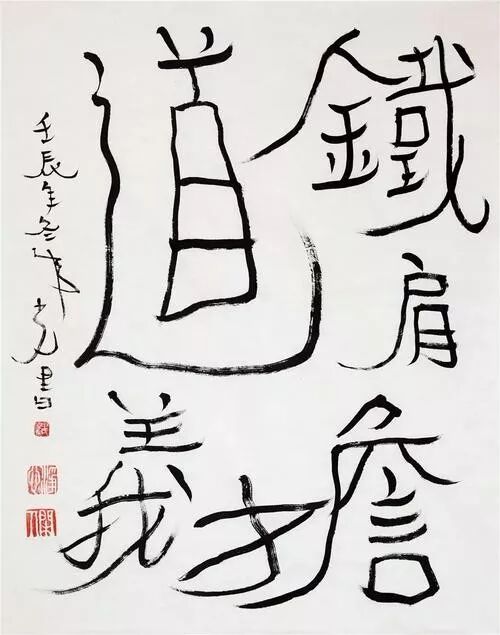 鐵肩擔
道義
壬辰年冬書